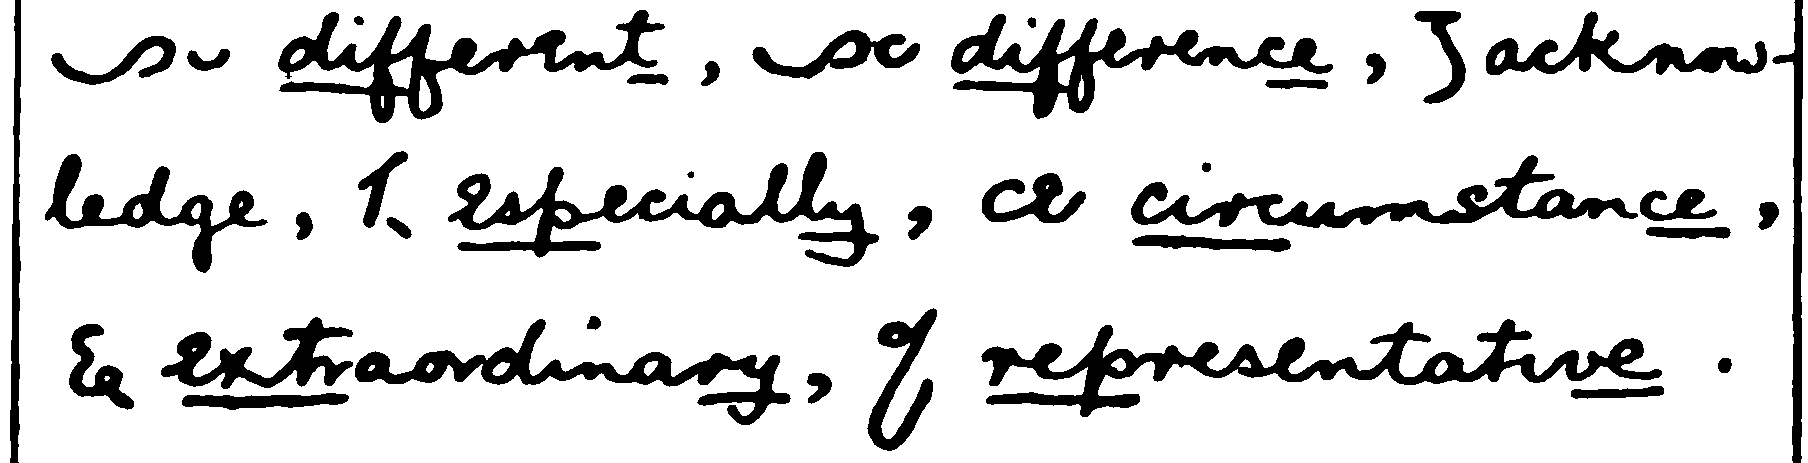 different, difference, acknow-
ledge, especially, circumstance,
extraordinary, representative.